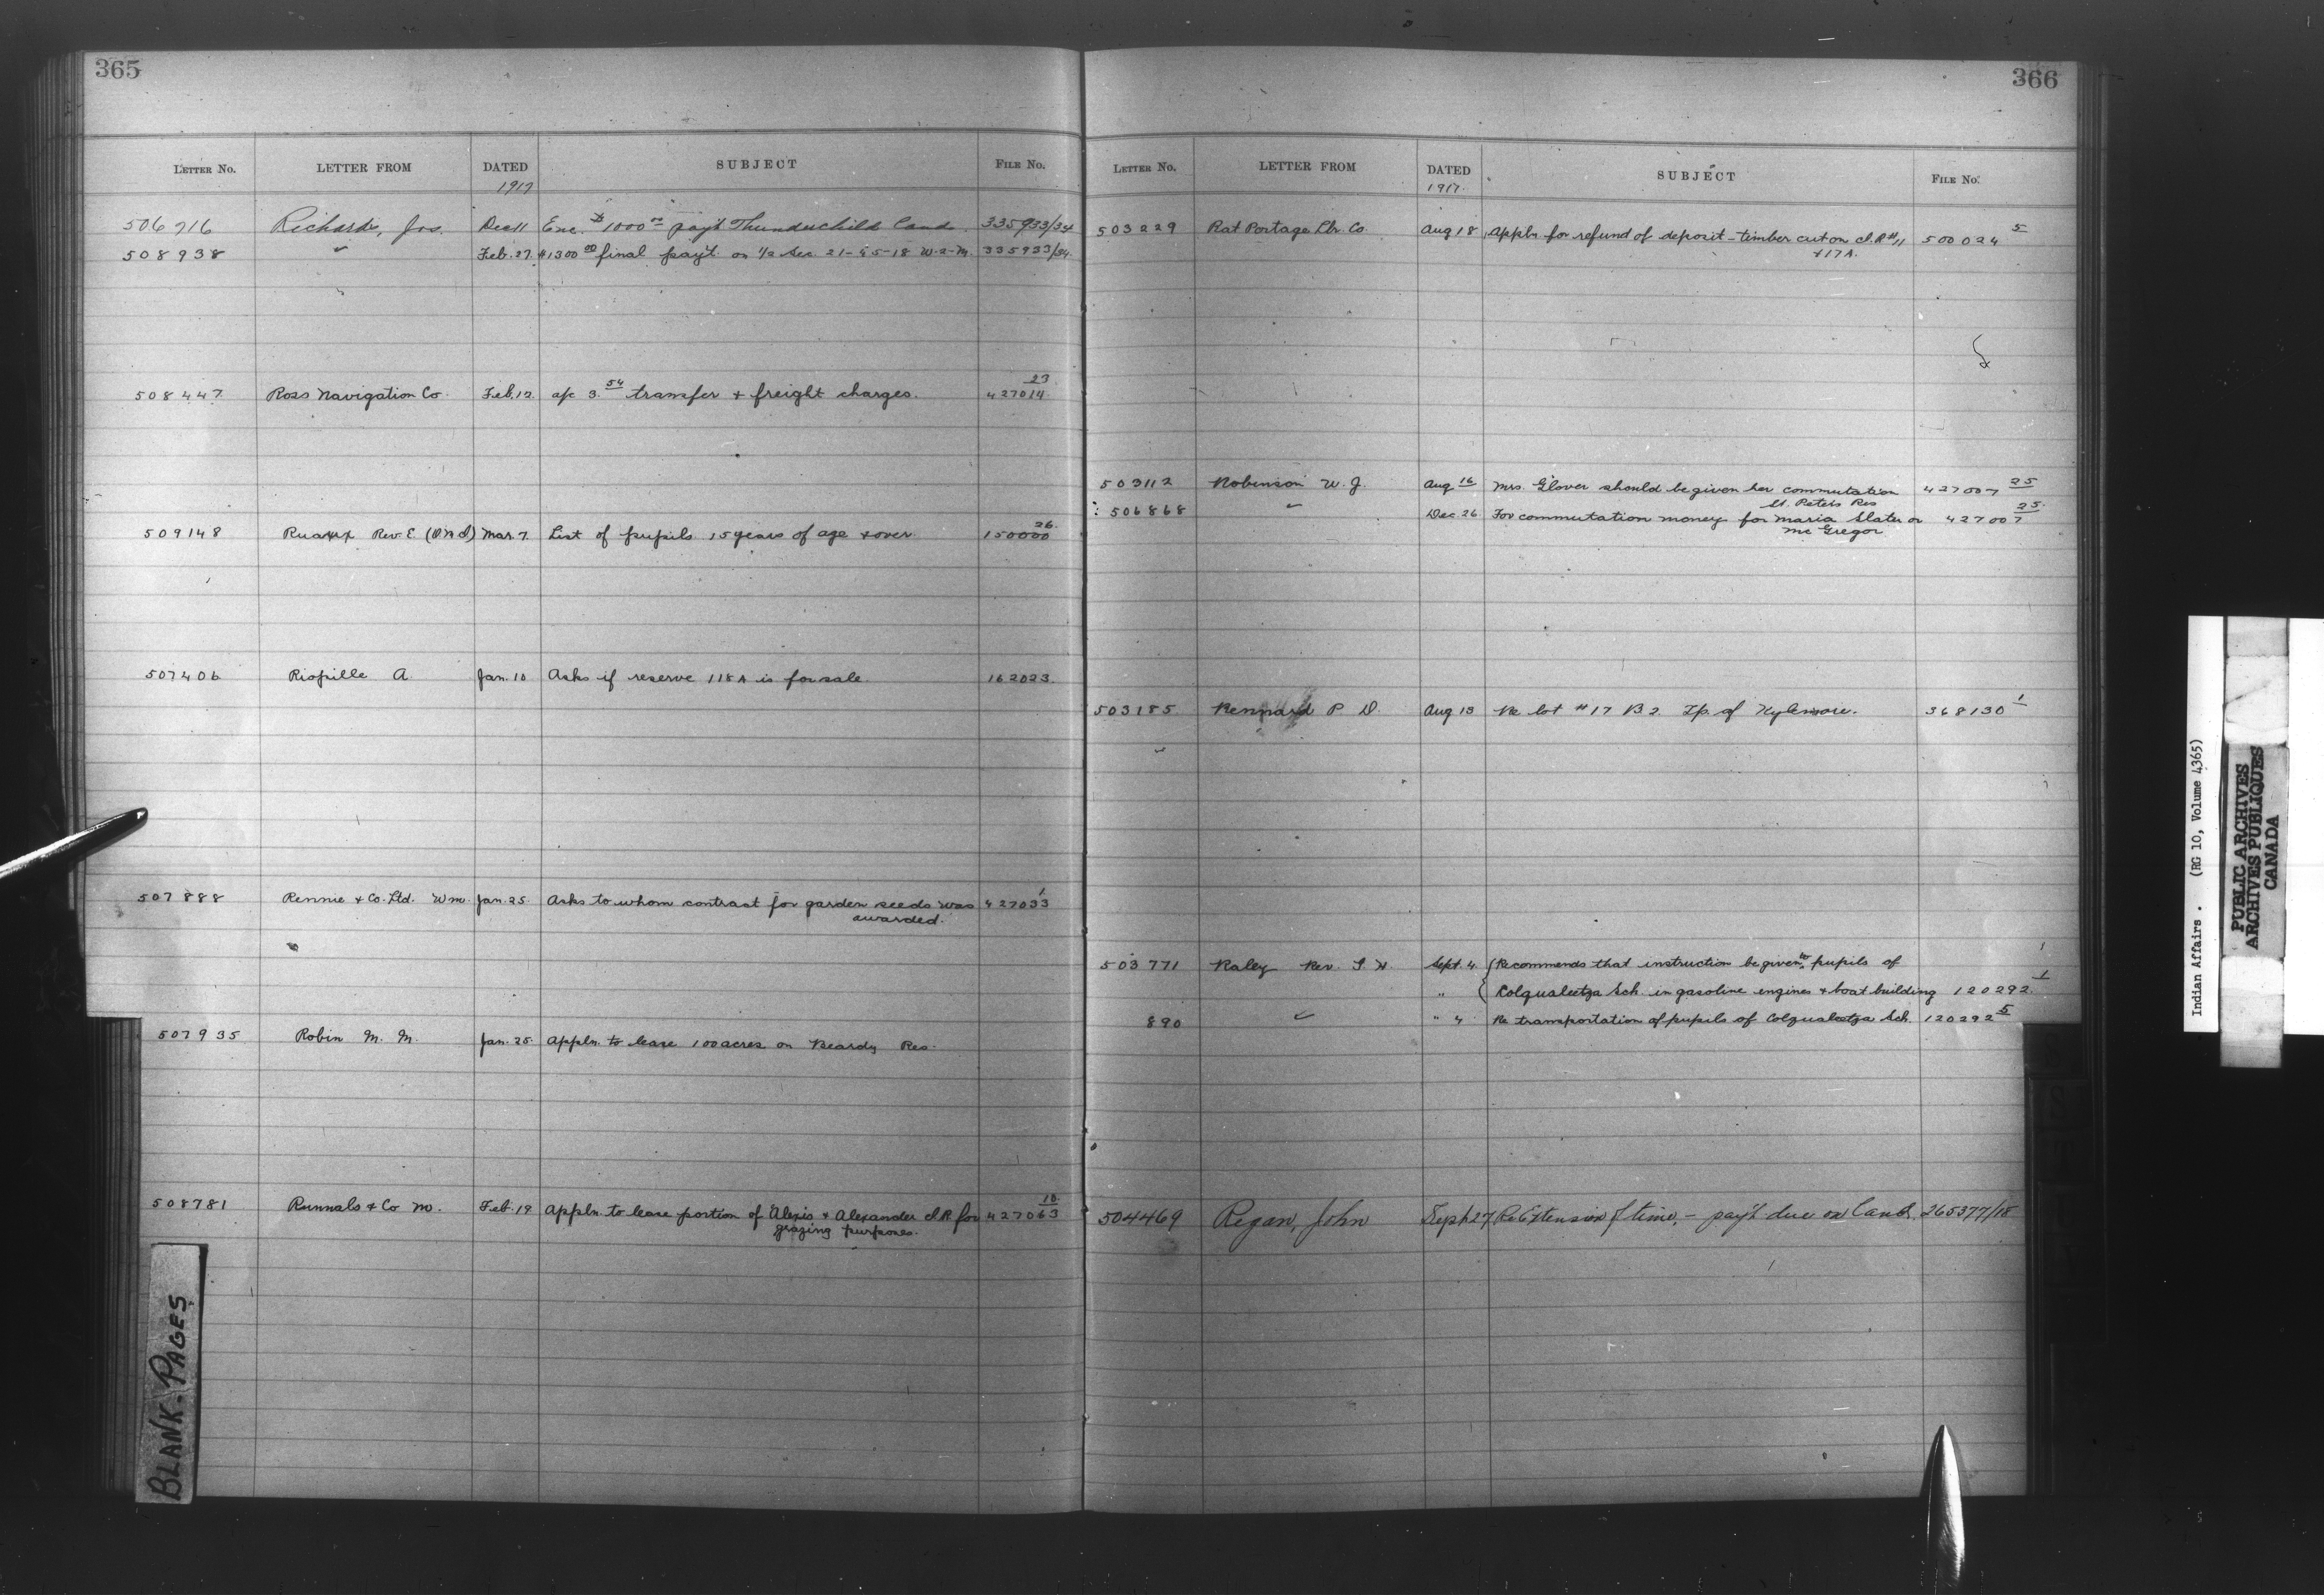 365
LETTER No. LETTER FROM DATED SUBJECT FILE No.
1917
506716 Richards, Jos. Dec 11 Enc. $1000.00 pay't Thunderchild land. 335933/34
508938 " Feb. 27. $1300.00 final pay't. on 1/2 Sec. 21-45-18 W-2-M. 335933/34.
508447 Ross Navigation Co. Feb. 12. a/c 3.54 transfer + freight charges. 427014 23
509148 Ruaux Rev. E. (O.M.I.) Mar. 7. List of pupils 15 years of age + over. 150000 26
507406 Riopille A. Jan. 10 Asks if reserve 118A is for sale. 162023.
507888 Rennie + Co. Ltd. Wm. Jan. 25. Asks to whom contract for garden seeds was 427033 1
awarded.
507935 Robin M. M. Jan. 25. Appln. to lease 100 acres on Beardy Res.
508781 Runnals + Co M. Feb. 19 Appln. to lease portion of Alexis + Alexander I.R. for 427063 10
grazing purposes.
BLANK-PAGES
366
LETTER No. LETTER FROM DATED SUBJECT FILE No.
1917.
503229 Rat Portage Lbr. Co. Aug 18 Appln for refund of deposit - timber cut on I.R. #11 500024 5
+ 17A.
503112 Robinson W. J. Aug 16 Mrs. Glover should be given her commutation 427007 25
St. Peters Res
506868 " Dec 26 For commutation money for Maria Slater or 427007 25
McGregor
503185 Rennard P. D. Aug 13 Re lot #17 B 2. Tp. of Kylemore. 368130 1
503771 Raley Rev. G. H. Sept. 4. Recommends that instruction be given to pupils of
" Colqualeetza Sch. in gasoline engines + boat building 120292. 1
890 " " 4 Re transportation of pupils of Colqualeetza Sch. 120292 5
504469 Regan, John Sept 27 Re Extension of time, - pay't due on land. 265377/18
Indian Affairs. (RG 10, Volume 4365)
PUBLIC ARCHIVES
ARCHIVES PUBLIQUES
CANADA